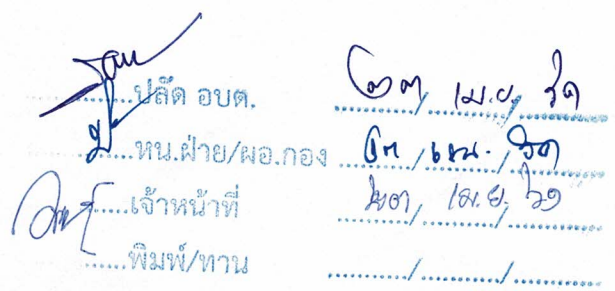 ......ปลัด อบต. ๒๓ / เม.ย. / ๖๑
......หน.ฝ่าย/ผอ.กอง ๒๓ / เม.ย. / ๖๑
......เจ้าหน้าที่ ๒๓ / เม.ย. / ๖๑
......พิมพ์/ทาน ........../........../..........